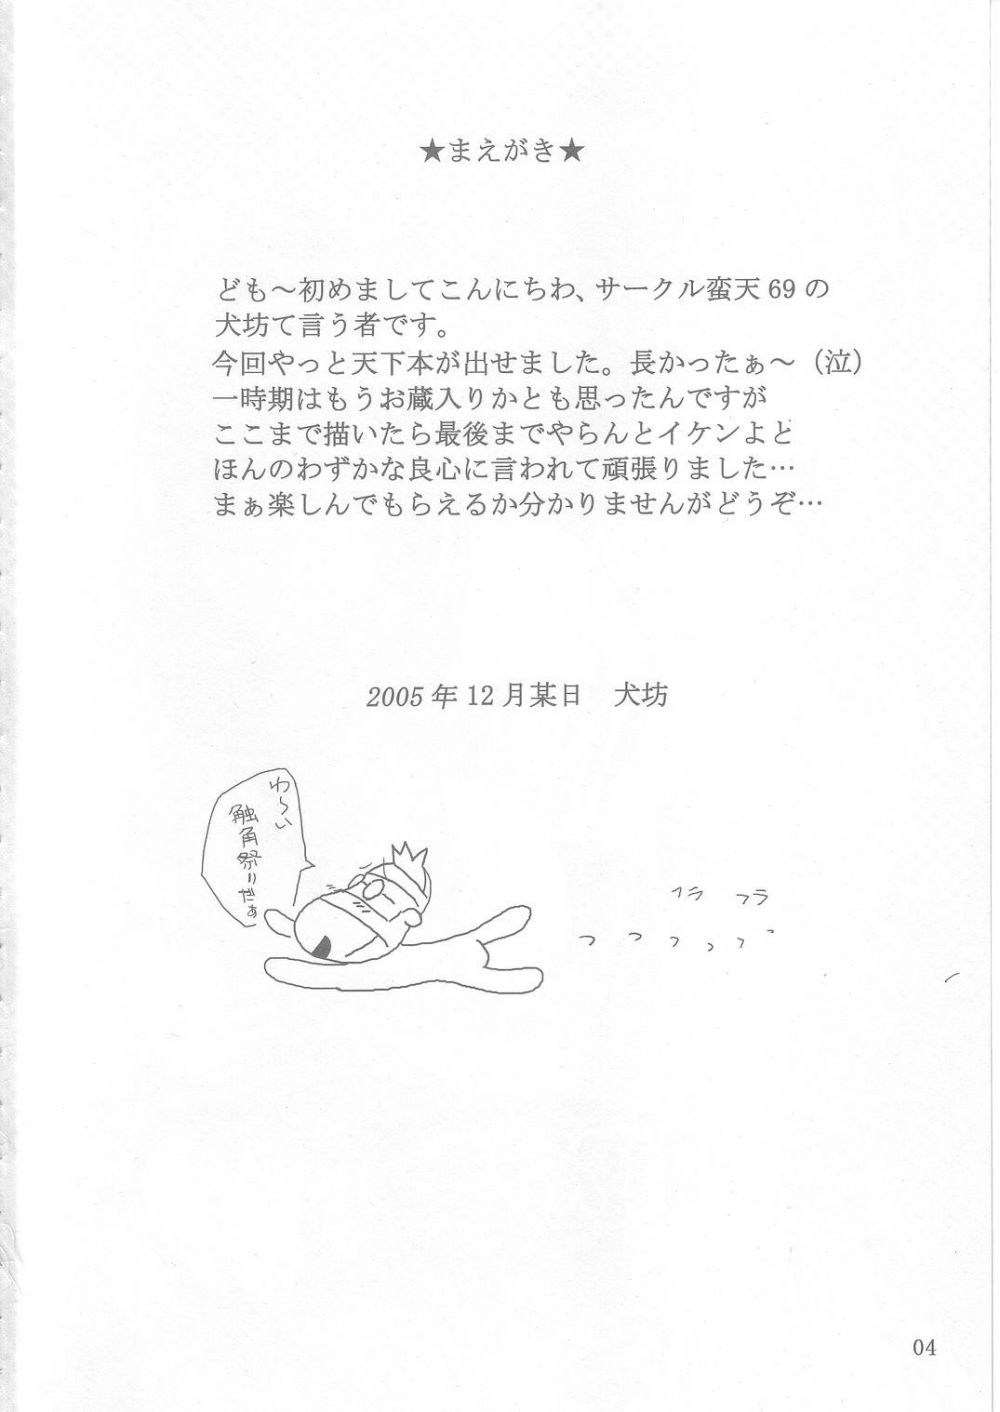 ★まえがき★
ども～初めましてこんにちわ、サークル蛮天69の
犬坊て言う者です。
今回やっと天下本が出せました。長かったぁ～（泣）
一時期はもうお蔵入りかとも思ったんですが
ここまで描いたら最後までやらんとイケンよと
ほんのわずかな良心に言われて頑張りました…
まぁ楽しんでもらえるか分かりませんがどうぞ…
2005年12月某日　犬坊
わ～い
触角祭りだぁ
フラ　フラ
04